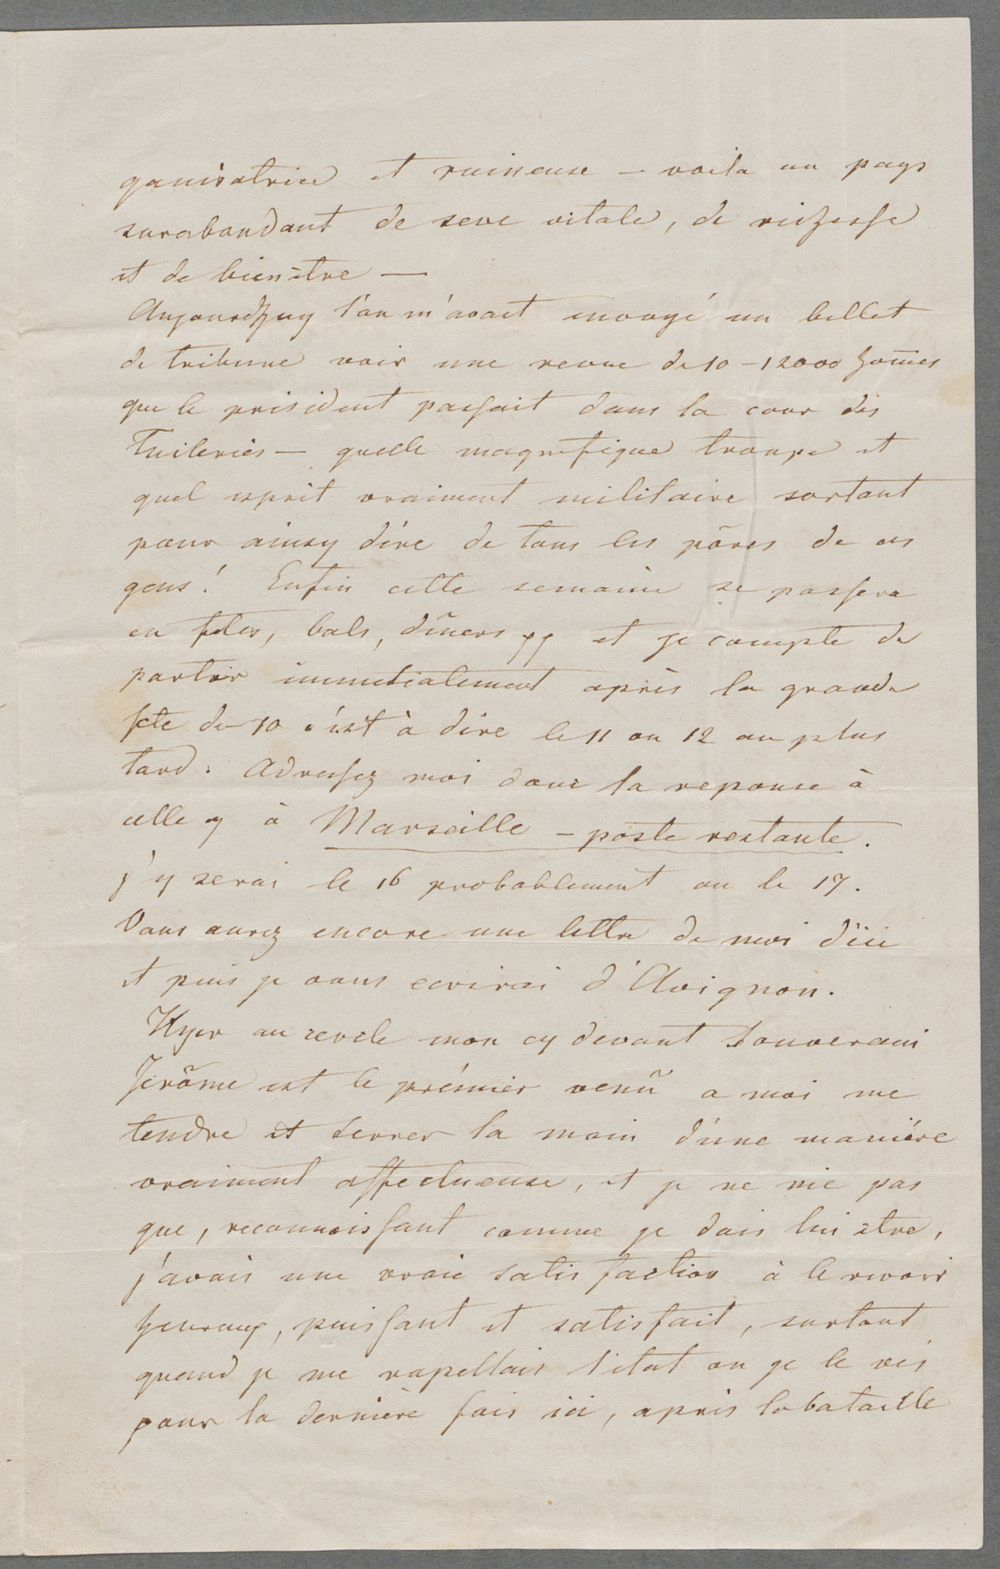 ganisatrice et ruineuse – voila un pays
surabondant de seve vitale, de richesse
et de bienêtre —
Aujourdhuy l'on m'avait envoyé un billet
de tribune voir une revue de 10 – 12000 hom̄es
que le président passait dans la cour des
Tuileries — quelle magnifique troupe et
quel esprit vraiment militaire sortant
pour ainsy dire de tous les pôres de ces
gens! Enfin cette semaine se passera
en fetes, bals, dîners et je compte de
partir immediatement après la grande
fete du 10 c'est à dire le 11 ou 12 au plus
tard. Adressez moi donc la reponse à
celle cy à Marseille – poste restante.
j'y serai le 16 probablement ou le 17.
Vous aurez encore une lettre de moi d'ici
et puis je vous ecrirai d'Avignon.
Hyer au cercle mon cy devant Souverain
Jerôme est le prémier venû a moi me
tendre et serrer la main d'une maniére
vraiment affectueuse, et je ne nie pas
que, reconnoissant comme je dois lui etre,
j'avais une vraie satisfaction à le revoir
heureux, puissant et satisfait, surtout
quand je me rapellais l'etat ou je le vis
pour la dernière fois ici, après la bataille